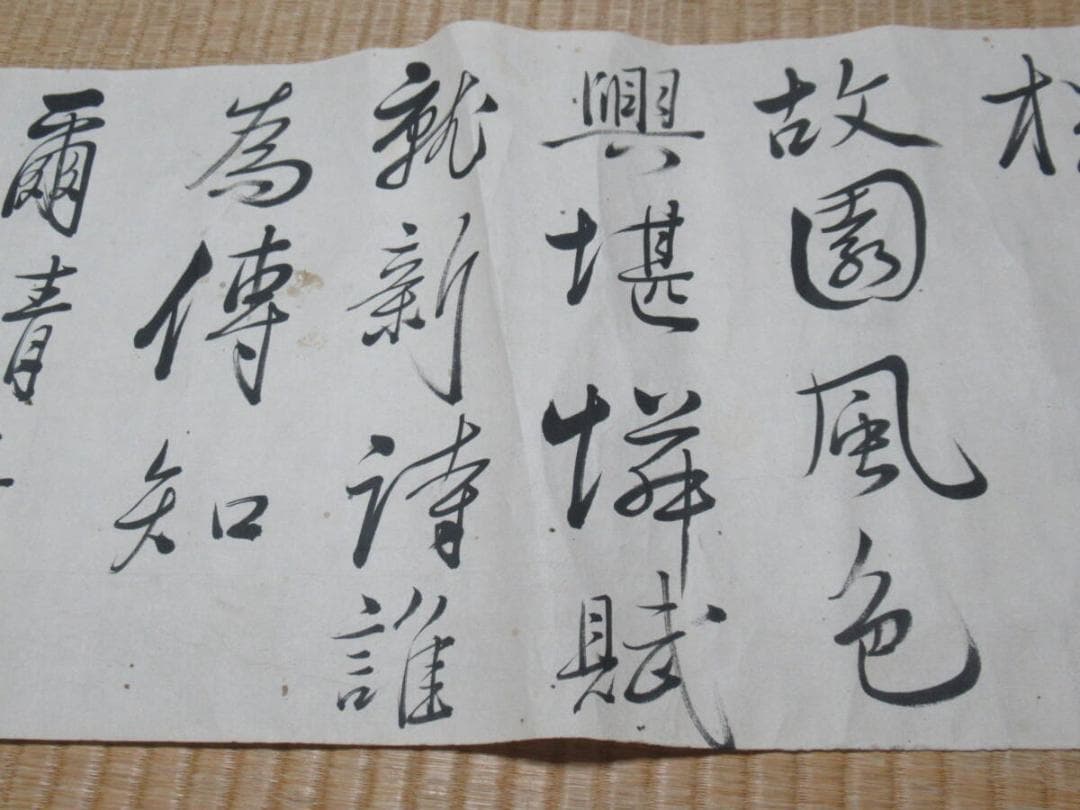 故園風色
興堪憐賦
就新詩誰
為傳知
爾青